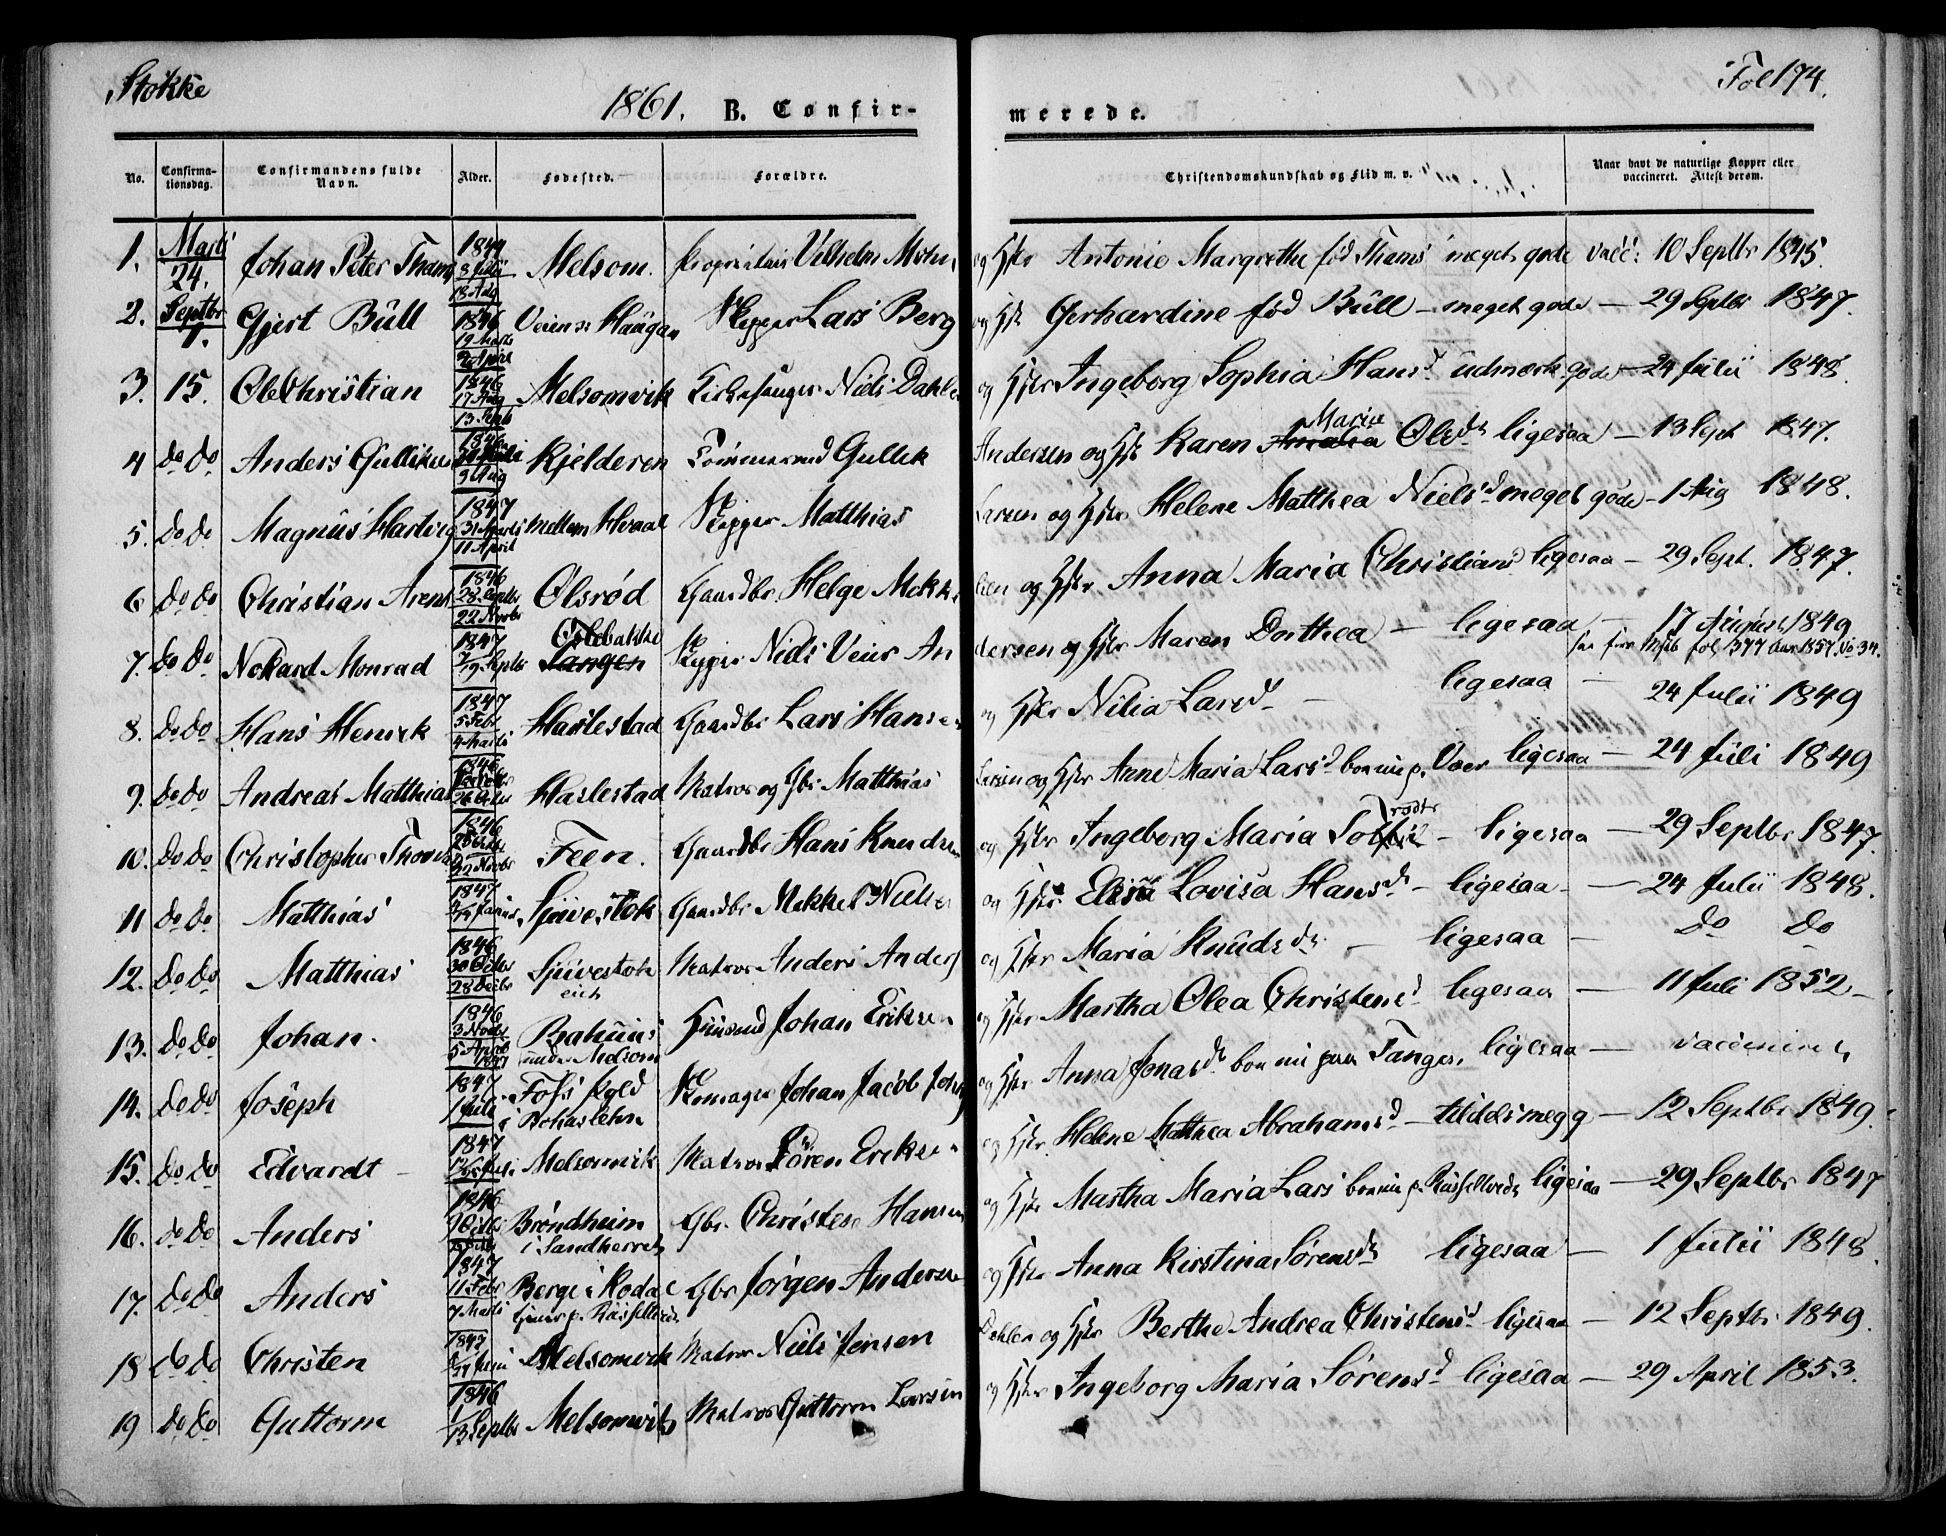 Stokke
1861. B. Confirmerede. Fol 174.
No. Confirmationsdag. Confirmandens fulde Navn. Alder. Fødested. Forældre. Christendomskundskab og Flid m. v. Naar havt de naturlige Kopper eller vaccineret. Attest derom.
1. Marts 24. Johan Peter Thams Melsom. Proprietair Vilhelm og Hstr Antonie Margrethe fød Thams meget gode vacc: 10 Septbr 1845.
2. Septbr 1. Gjert Büll 1846 19 Marts Skipper Lars Berg og Hstr Gerhardine fød Büll – meget gode – 29 Septbr 1847.
3. 15. Ole Christian 1846 17 Aug 13 Septb Melsomvik Kirkesanger Niels Dahl og Hstr Ingeborg Sophia Hansd. udmærk. gode – 24 Julii 1848.
4 do do Anders Gulliksen 1846 9 Aug Kjelderen Tømmermand Gullik Andersen og Hstr Karen Maria Olsdr ligesaa – 13 Sept 1847.
5. do do Magnus Hartvig 1847 31 Marts 11 April Mellem Hvaal Skipper Matthias Larsen og Hstr Helene Matthea Nielsd meget gode – 1 Aug 1848.
6 do do Christian Arent 1846 28 Septbr 22 Novbr Olsrød Gaardbr Helge og Hstr Anna Maria Christiansd ligesaa – 29 Sept. 1847.
7. do do Monrad 1847 Septbr Skipper Niels Veier Andersen og Hstr Maren Dorthea – ligesaa – 17 August 1849
8. do do Hans Henrik 1847 5 Febr 4 Marts Haslestad Gaardbr Lars Hansen og Hstr Nilia Larsd – ligesaa – 24 Julii 1849
9. do do Andreas Matthias 1846 Haslestad Matros og Gbr Matthias Larsen og Hstr Anne Maria Larsd boende p. Oøer ligesaa – 24 Juli 1849
10. do do Christopher 1846 22 Novbr Feen. Gaardbr Hans Knudsen og Hstr Ingeborg Maria – ligesaa – 29 Septbr 1847.
11 do do Matthias 1847 Gaardbr Mikkel Nielsen og Hstr Lovisa Hansdr – ligesaa – 24 Julii 1848.
12. do do Matthias 1846 30 Octbr 28 Decbr Matros Anders Anders og Hstr Maria Knudsdr. – ligesaa – do do
13. do do Johan. 1846 3 Novbr 5 April 1847 under Melsom Huusmand Johan Eriksen og Hstr Martha Olea Christensd ligesaa – 11 Juli 1852 –
14. do do Joseph 1847 1 Juli i Bohuslehn Skomager Johan Jacob og Hstr Anna Jonasdr boende paa Tangen. ligesaa – vaccineret
15. do do Edvardt – 1847 Melsomvik Matros Søren Eriksen og Hstr Helene Matthea Abrahamsd – tildels meg g – 12 Septbr 1849.
16. do do Anders 1846 9 Octbr Brøndheim i Sandherred Gbr. Christen Hansen og Hstr Martha Maria Lars ligesaa – 29 Septbr 1847
17. do do Anders 1847 11 Febr 7 Marts Berge i Kodal Gbr Jørgen Andersen og Hstr Anna Kirstina Sørensdr ligesaa – 1 Julii 1848
18 do do Christen 1847 Melsomvik Matros Niels Jensen Dahlen og Hstr Berthe Andrea Christensd ligesaa – 12 Septbr 1849
19 do do Guttorm 1846 13 Septbr Melsomvik Matros Guttorm Larsen og Hstr Ingeborg Maria Sørensd ligesaa – 29 April 1853.